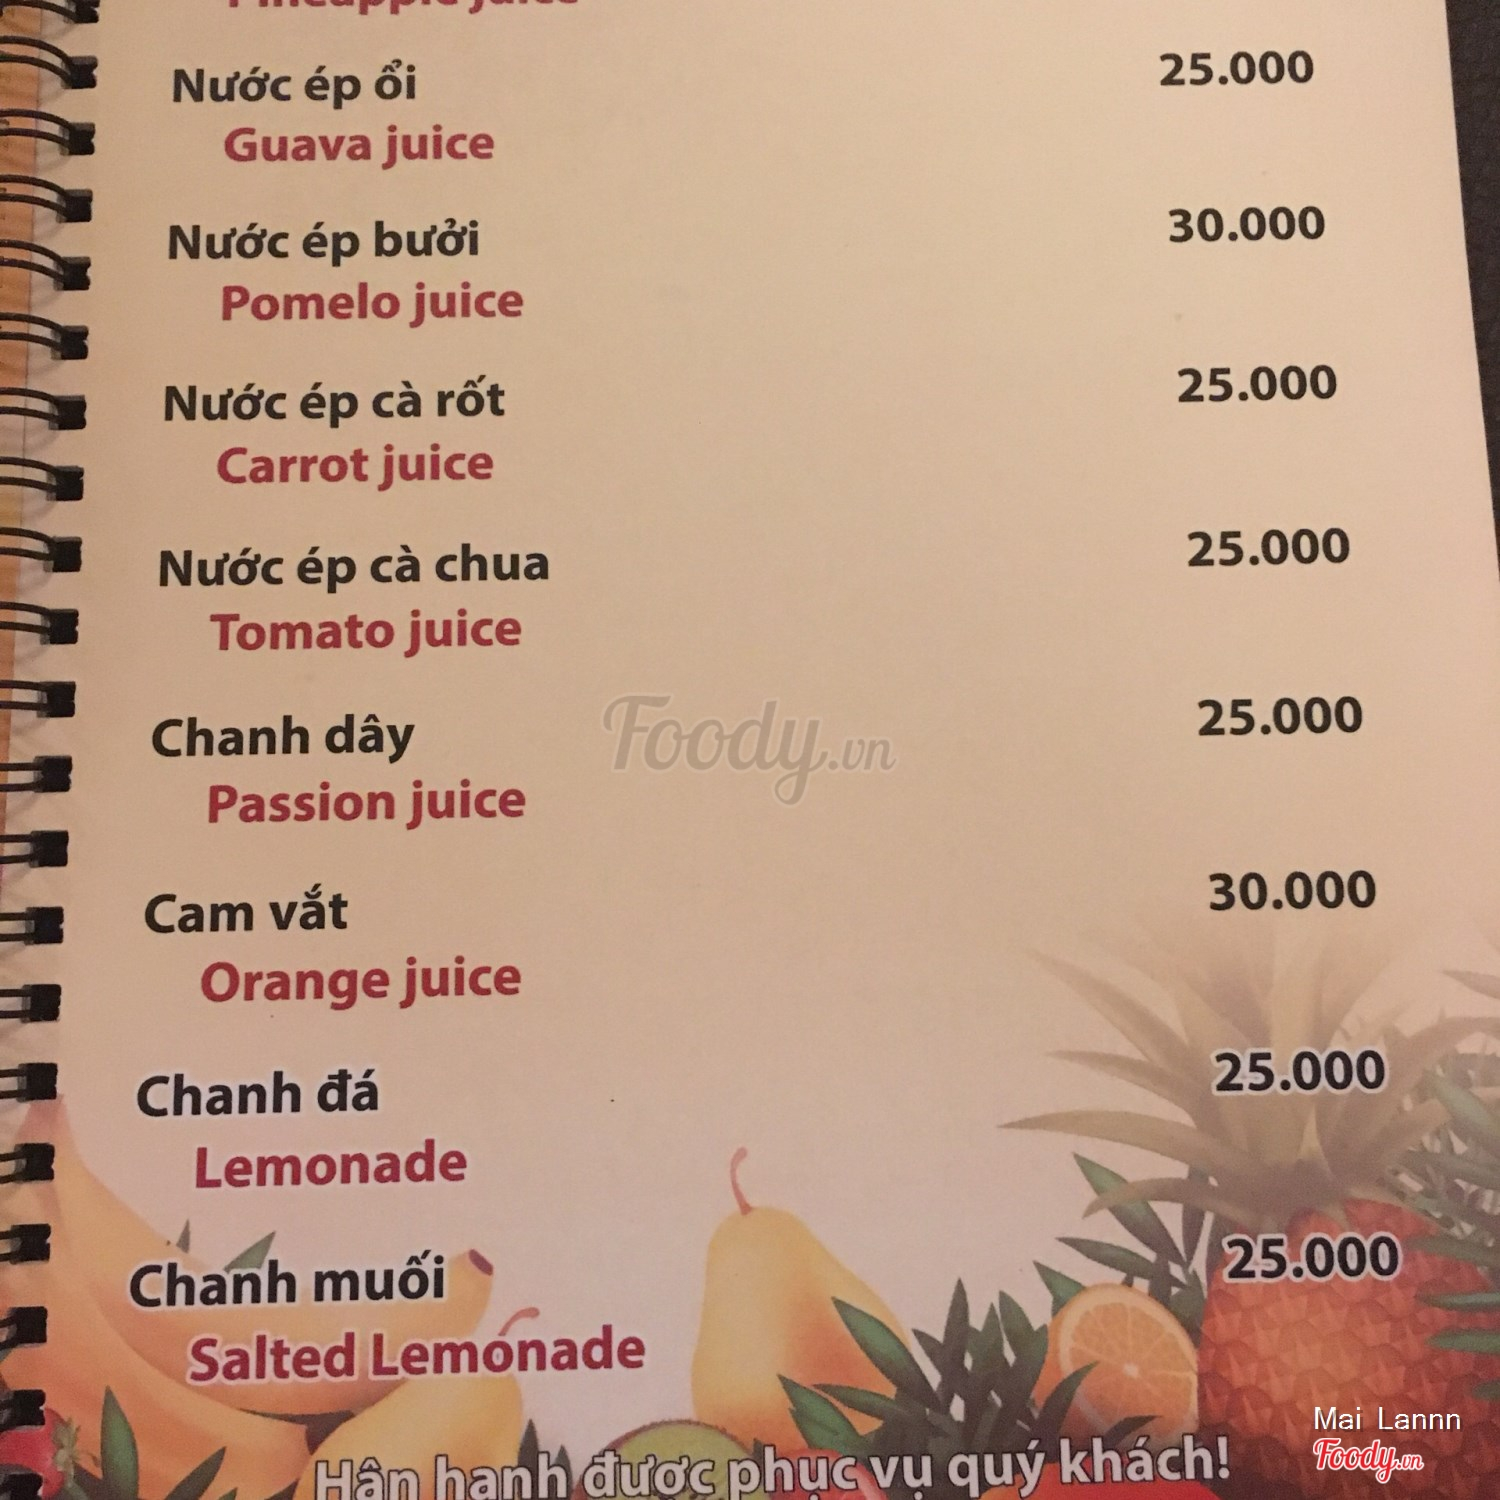 Pineapple juice
Nước ép ổi 25.000
Guava juice
Nước ép bưởi 30.000
Pomelo juice
Nước ép cà rốt 25.000
Carrot juice
Nước ép cà chua 25.000
Tomato juice
Chanh dây 25.000
Passion juice
Foody.vn
Cam vắt 30.000
Orange juice
Chanh đá 25.000
Lemonade
Chanh muối 25.000
Salted Lemonade
Mai Lannn
Foody.vn
Hân hạnh được phục vụ quý khách!